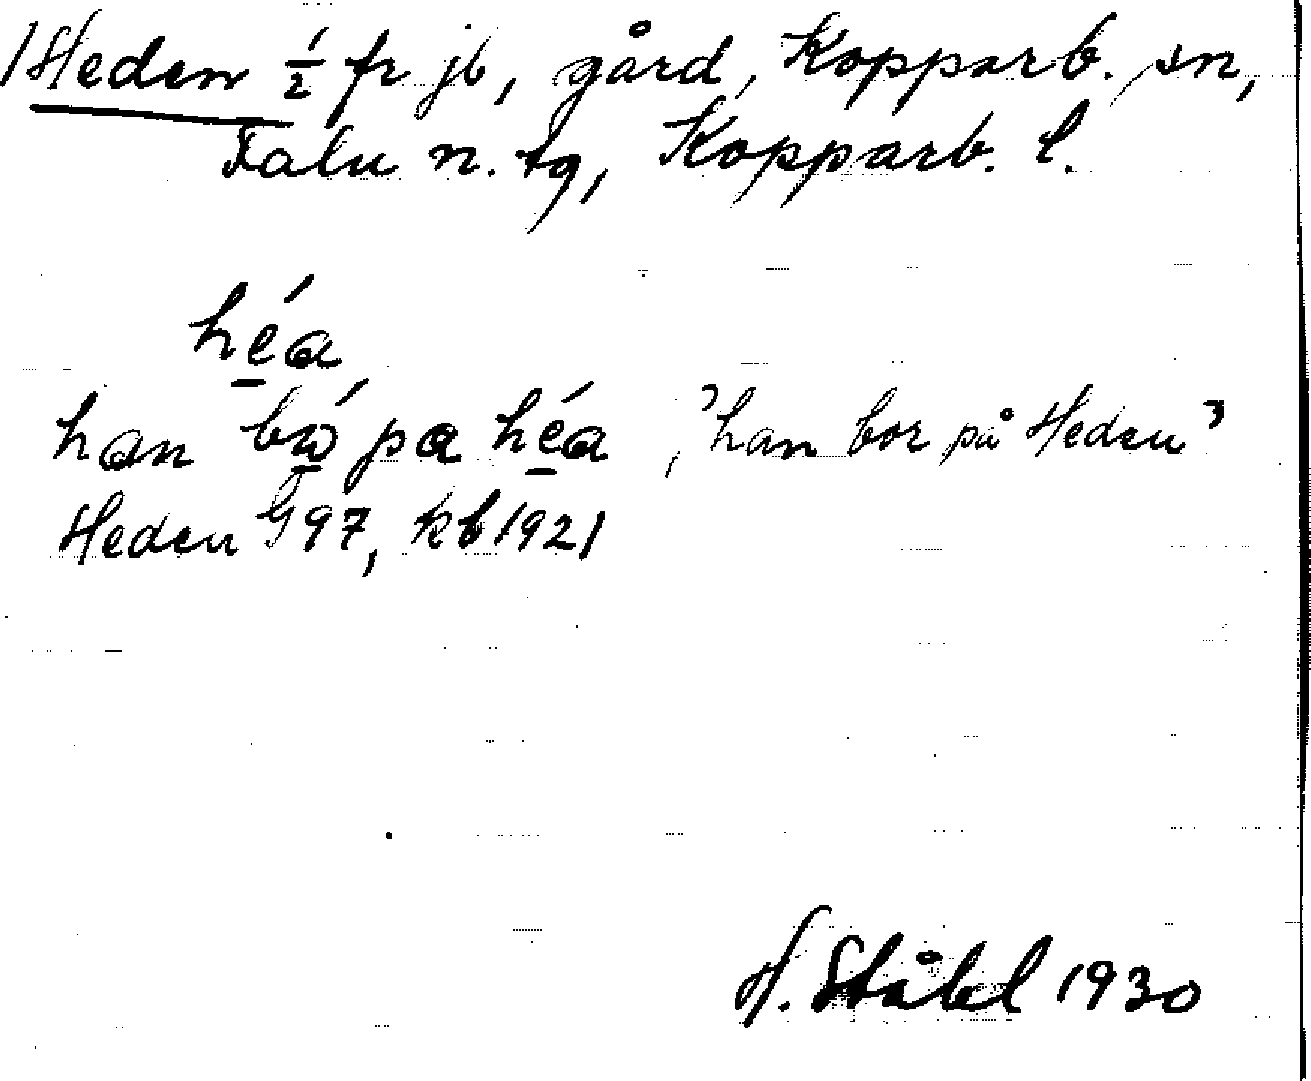 Heden ½ fr jb, gård, Kopparb. sn,
Falu n. tg, Kopparb. l.
héa
han bó pa héa, 'han bor på Heden'
Heden G97, kb 1921
H. Ståhl 1930